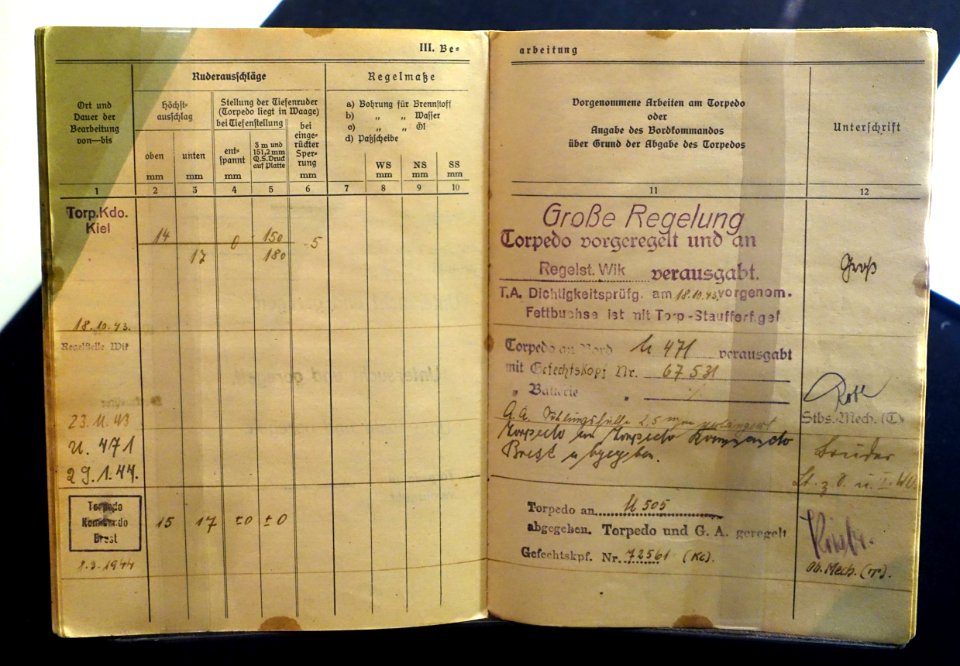 III. Be=
arbeitung
Ort und
Dauer der
Bearbeitung
von—bis
Ruderausschläge
Höchst-
ausschlag
Stellung der Tiefenruder
(Torpedo liegt in Waage)
bei Tiefenstellung
bei
einge-
rückter
Sper-
rung
oben
unten
ent-
spannt
3 m und
151,2 mm
Q.S. Druck
auf Platte
mm
mm
mm
mm
mm
Regelmaße
a) Bohrung für Brennstoff
b) „ „ Wasser
c) „ „ Öl
d) Paßscheibe
WS
mm
NS
mm
SS
mm
Vorgenommene Arbeiten am Torpedo
oder
Angabe des Bordkommandos
über Grund der Abgabe des Torpedos
Unterschrift
1 2 3 4 5 6 7 8 9 10 11 12
Torp.Kdo.
Kiel
14 0 150 5
17 180
18.10.43.
Regelstelle Wik
23.11.43
U. 471
29.1.44.
Torpedo
Kommando
Brest
1.3.1944
15 17 ±0 ±0
Große Regelung
Torpedo vorgeregelt und an
Regelst. Wik verausgabt.
T.A. Dichtigkeitsprüfg. am 18.10.43 vorgenom.
Fettbuchse ist mit Torp-Staufferf. gef
Groß
Torpedo an Bord U 471 verausgabt
mit Gefechtskopf Nr. 67531
„ Batterie
G.A. 2,5 mm verlängert
Stbs. Mech. (T)
Torpedo an Torpedo Kommando
Brest abgegeben.
Torpedo an U 505
abgegeben. Torpedo und G. A. geregelt
Gefechtskpf. Nr. 72561 (Kc).
Ob. Mech. (T).